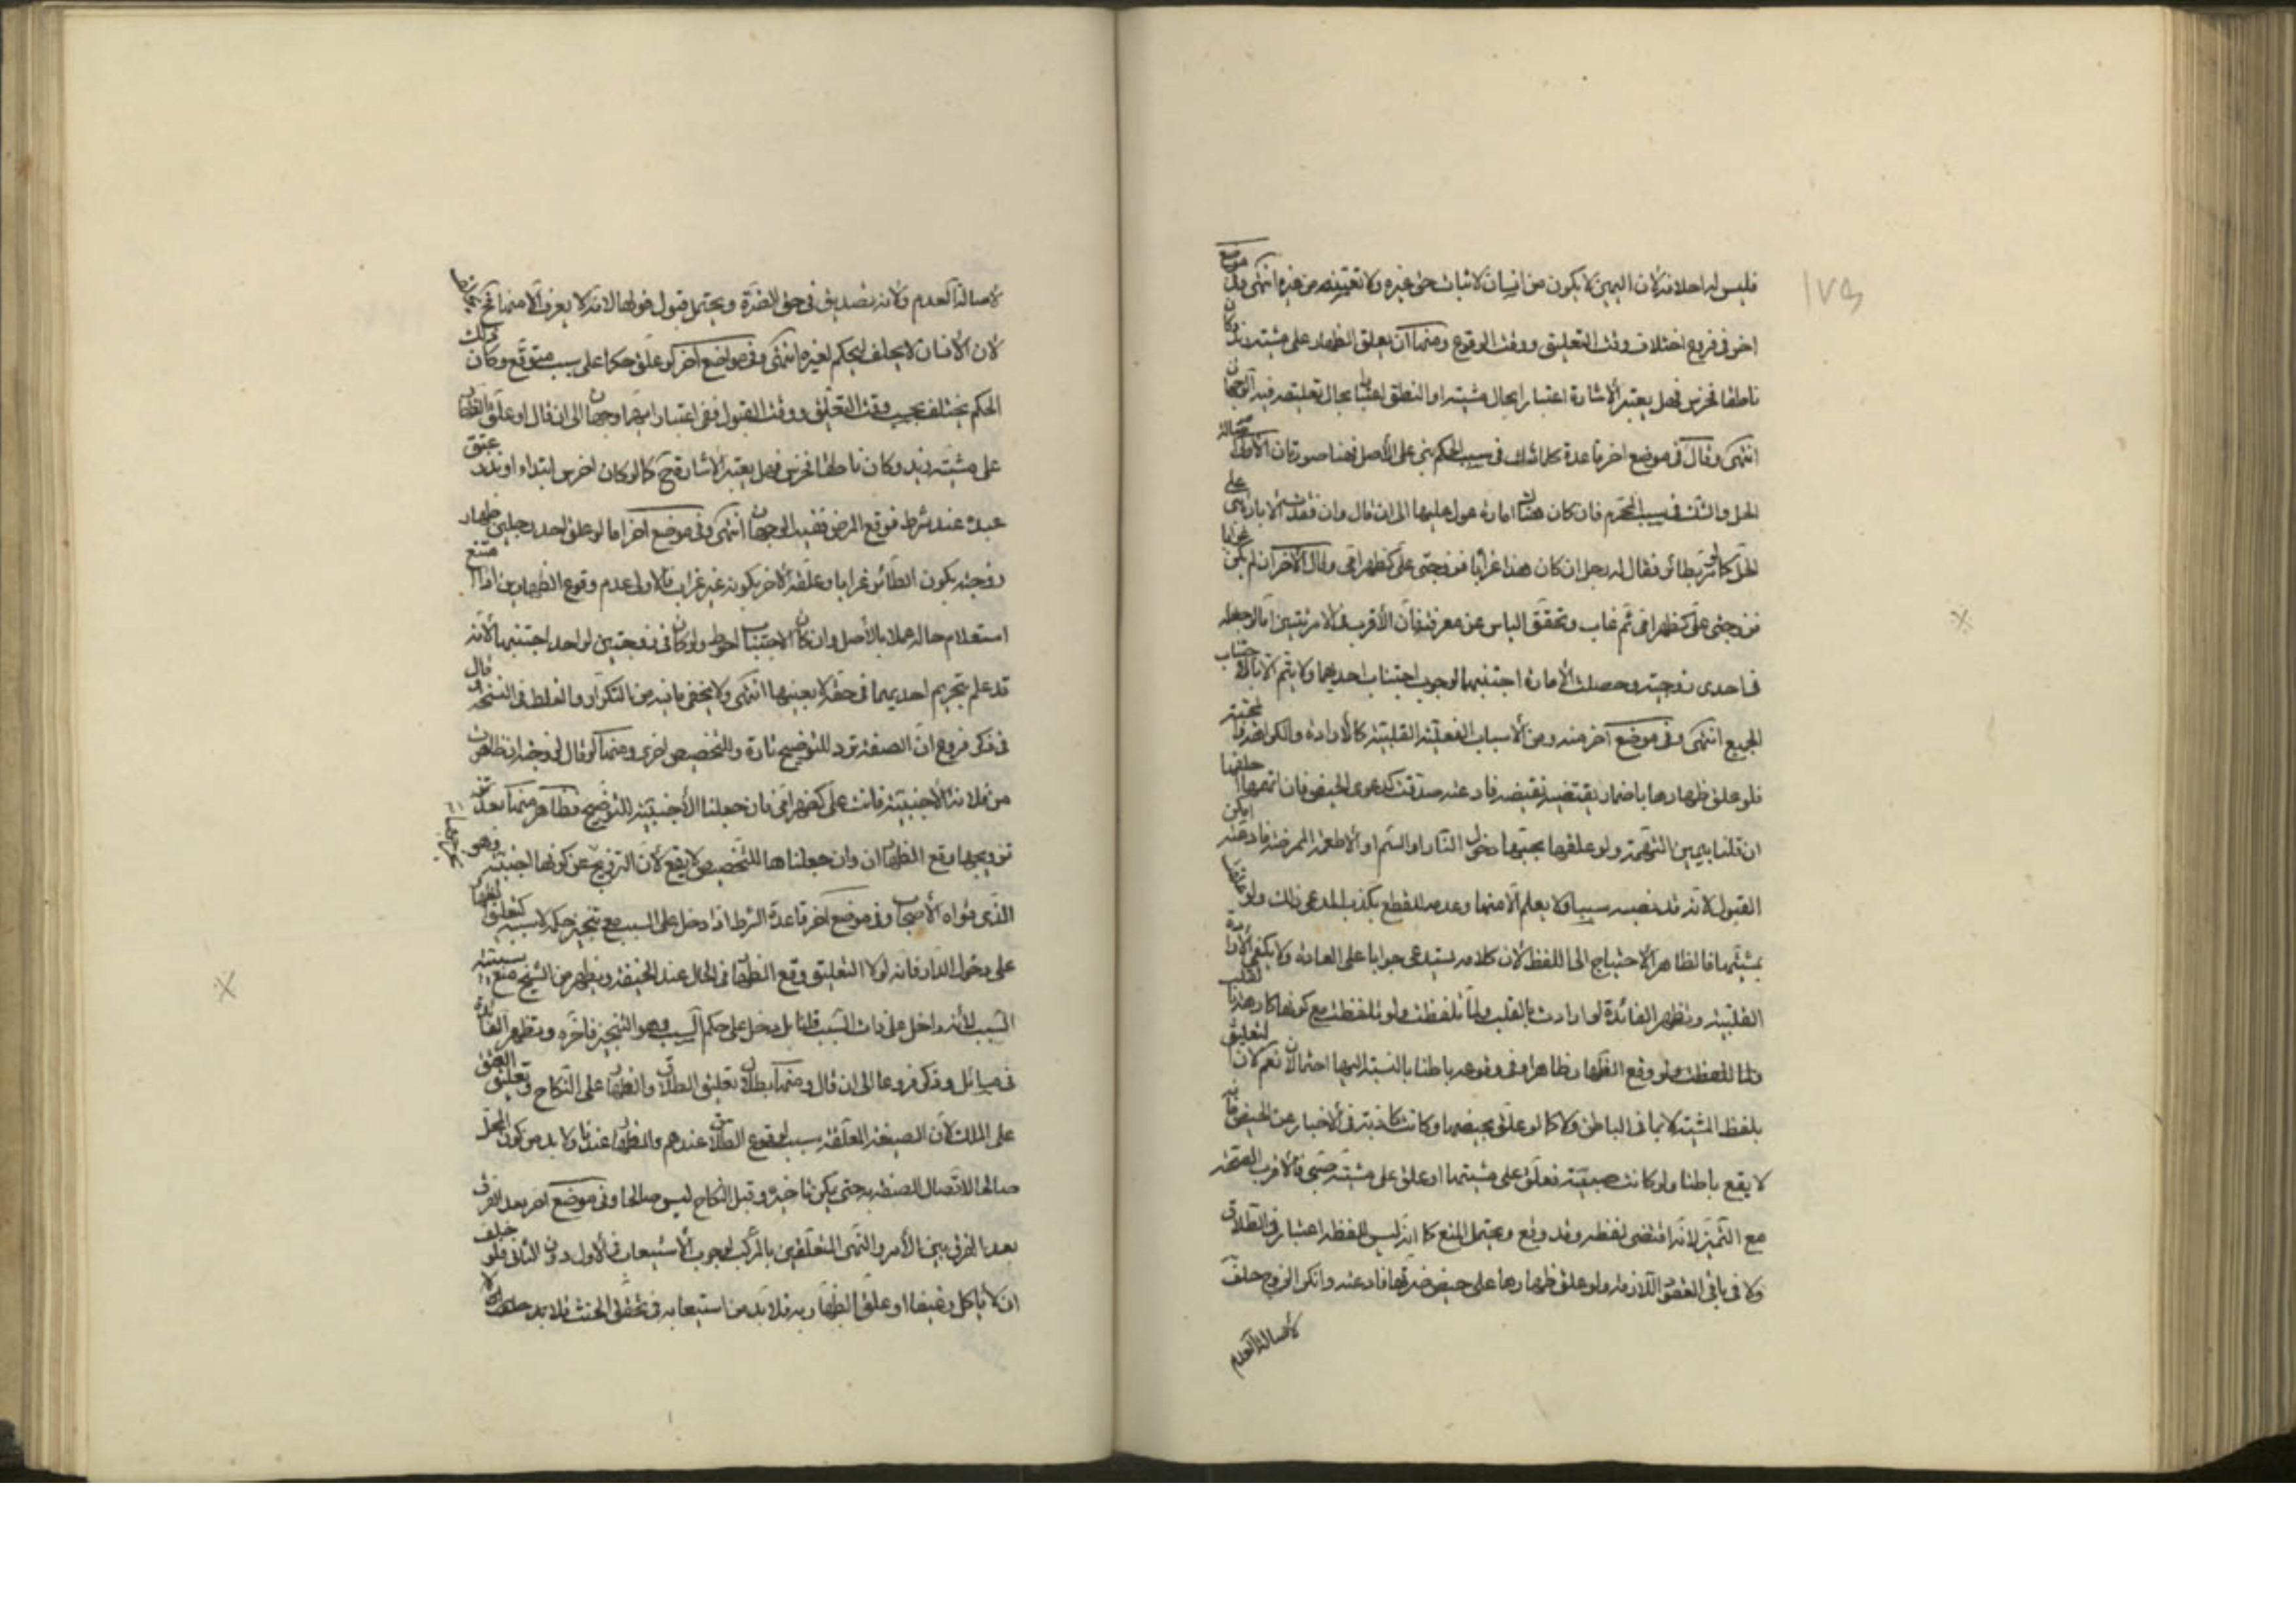 ١٧٥
فليس له احلافه لان اليمين لا يكون من انسان لاثبات حق غيره ولا تعيينه من غيره انتهى وفي موضع
اخر في فروع اختلاف وقت التعليق ووقت الوقوع ومنها ان يعلق الظهار على مشيته زيد وكان
ناطقا فخرس فهل يعتبر الاشارة اعتبارا بحال مشيته او النطق اعتبارا بحال تعليقه فيه الوجهان
انتهى وقال في موضع اخر قاعدة كلما شك في سبب الحكم بني على الاصل فهنا صورتان الاولى اصالة
الحل والشك في سبب المحرم فان كان هناك امارة عول عليها الى ان قال وان فقدت الامارة بني على
الحل كما لو مر بطائر فقال له رجل ان كان هذا غرابا فزوجتي علي كظهر امي وقال الاخر ان لم يكن غرابا
فزوجتي علي كظهر امي ثم غاب وتحقق الياس عن معرفته فان الاقرب
في احدى زوجتيه وحصلت الامارة اجتنبهما لوجوب اجتناب احديهما ولا يتم الا باجتناب
الجميع انتهى وفي موضع آخر منه ومن الاسباب الفعلية القلبية كالارادة والكراهة والمحبة
فلو علق ظهارها باضمار بغضه فادعته صدقت كدعوى الحيض فان اتهمها حلفها
ان قلنا بيمين التهمة ولو علقها بمحبتها دخول النار او السم او الاطعمة الممرضة فادعته امكن
القبول لانه قد نصبه سببا ولا يعلم الا منها وعدمه للقطع بكذب المدعي ذلك ولو علقه
بمشيتها فالظاهر الاحتياج الى اللفظ لان كلامه يستدعي جوابا على العادة ولا يكفي الارادة
القلبية وتظهر الفائدة لو ارادت بالقلب ولما تلفظت ولو تلفظت مع كونها كارهة بالقلب
فلما تلفظت وقع الظهار ظاهرا وفي وقوعه باطنا بالنسبة اليها احتمالان نعم لان التعليق
بلفظ المشية لا بما في الباطن ولا كما لو علق بحيضها وكانت كاذبة في الاخبار عن الحيض فانه
لا يقع باطنا ولو كانت صبية فعلق على مشيتها او علق على مشية صبي فالاقرب الصحة
مع التميز لانه اقتضى لفظه وقد وقع ويحتمل المنع كما انه ليس للفظه اعتبار في الطلاق
ولا في باقي العقود اللازمة ولو علق ظهارها على حيض ضرتها فادعته وانكر الزوج حلف
لاصالة العدم
لاصالة العدم ولانه تصديق في حق الضرة ويحتمل قبول قولها لانه لا يعرف الا منها
لان الانسان لا يحلف ليحكم لغيره انتهى وفي مواضع آخر لو علق حكما على سبب متوقع وكان ذلك
الحكم يختلف بحسب وقت التعليق ووقت القبول ففي اعتبار ايهما وجهان الى ان قال او علق الظهار
على مشيته زيد وكان ناطقا فخرس فهل يعتبر الاشارة ح كما لو كان اخرس ابتداء او نذر عتق
عبده عند شرط فوقع المرض ففيه الوجهان انتهى وفي موضع آخر اما لو علق احد رجلين ظهار
زوجته بكون الطائر غرابا وعلقه الاخر بكونه غير غراب فالاولى عدم وقوع الظهارين اذا امتنع
استعلام حاله عملا بالاصل وان كان الاجتناب احوط ولو كان في زوجتين لواحد اجتنبهما لانه
قد علم تحريم احديهما في حقه لا بعينها انتهى ولا يخفى ما فيه من التكرار والغلط في النسخة وقال
في ذكر فروع ان الصفة ترد للتوضيح تارة وللتخصيص اخرى ومنها لو قال لزوجته ان ظاهرت
من فلانة الاجنبية فانت علي كظهر امي فان جعلنا الاجنبية للتوضيح فظاهر منها بعد
تزويجها وقع الظهاران وان جعلناها للتخصيص لا يقع لان التزويج عن كونها اجنبية وهو
الذي قواه الاصحاب وفي موضع آخر قاعدة الشرط اذا دخل على السبب مع تنجيز حكمه لا سببيته كتعليق الظهار
على دخول الدار فانه لولا التعليق وقع الظهار في الحال عند الحنيفة ويظهر من الشيخ منع سببيته
السبب لانه داخل على ذات السبب قلنا بل دخل على حكم السبب وهو التنجيز فاخره وتظهر الفائدة
في مسائل وذكر فروعا الى ان قال ومنها بطلان تعليق الطلاق والظهار على النكاح وتعليق العتق
على الملك لان الصيغة المعلقة سبب لوقوع الطلاق عندهم والظهار عندنا ولا بد من كون المحل
صالحا لاتصال الصيغة به حتى يكن تاخيره وقبل النكاح ليس صالحا وفي موضع اخر بعد الفرق
بعد الفرق بين الامر والنهي المتعلقين بالمركب لوجوب الاستيعاب في الاول دون الثاني فلو حلف
ان لا ياكل رغيفا او علق الظهار به فلا بد من استيعابه في تحقق الحنث فلا بد